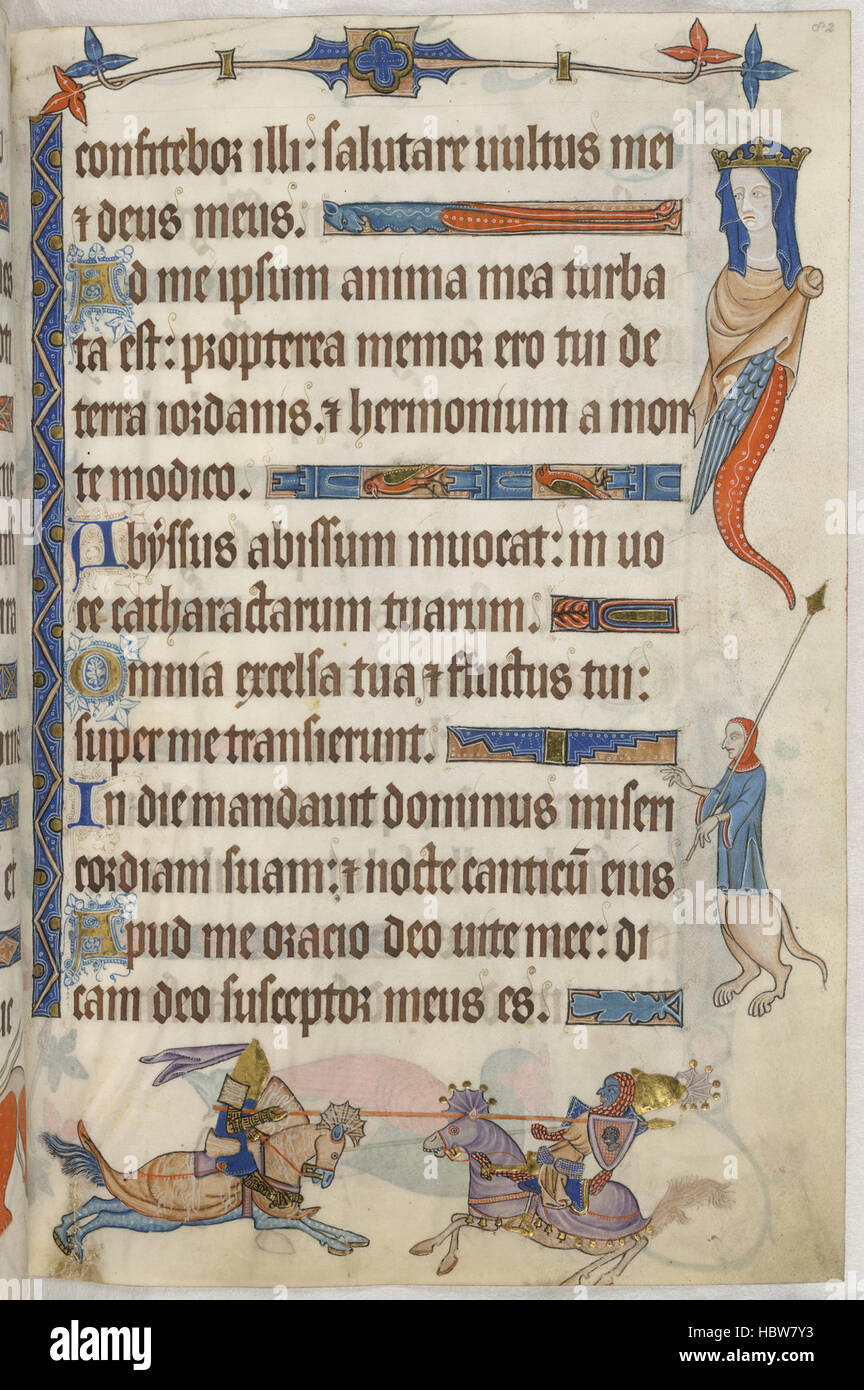 82
confitebor illi: salutare uultus mei
⁊ deus meus.
Ad me ipsum anima mea turba
ta est: propterea memor ero tui de
terra iordanis. ⁊ hermonium a mon
te modico.
Abẏssus abissum inuocat: in uo
ce catharactarum tuarum.
Omnia excelsa tua ⁊ fluctus tui:
super me transierunt.
In die mandauit dominus miseri
cordiam suam: ⁊ nocte canticū eius
Apud me oracio deo uite mee: di
cam deo susceptor meus es.
alamy
Image ID: HBW7Y3
www.alamy.com